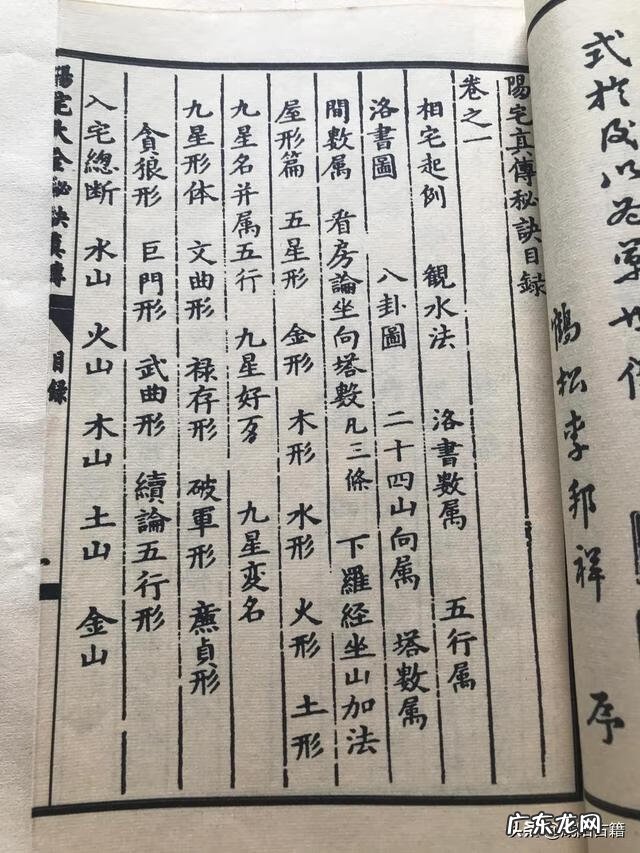 式於後以為
鶴松李邦祥 序
陽宅真傳秘訣目録
卷之一
相宅起例 観水法 洛書数属 五行属
洛書圖 八卦圖 二十四山向属 塔数属
間数属 看房論坐向塔数凡三條 下羅経坐山加法
屋形篇 五星形 金形 木形 水形 火形 土形
九星名并属五行 九星好歹 九星変名
九星形体 文曲形 禄存形 破軍形 亷貞形
貪狼形 巨門形 武曲形 續論五行形
入宅總断 水山 火山 木山 土山 金山
陽宅大全秘訣真傳 目録
广东龙网
古籍